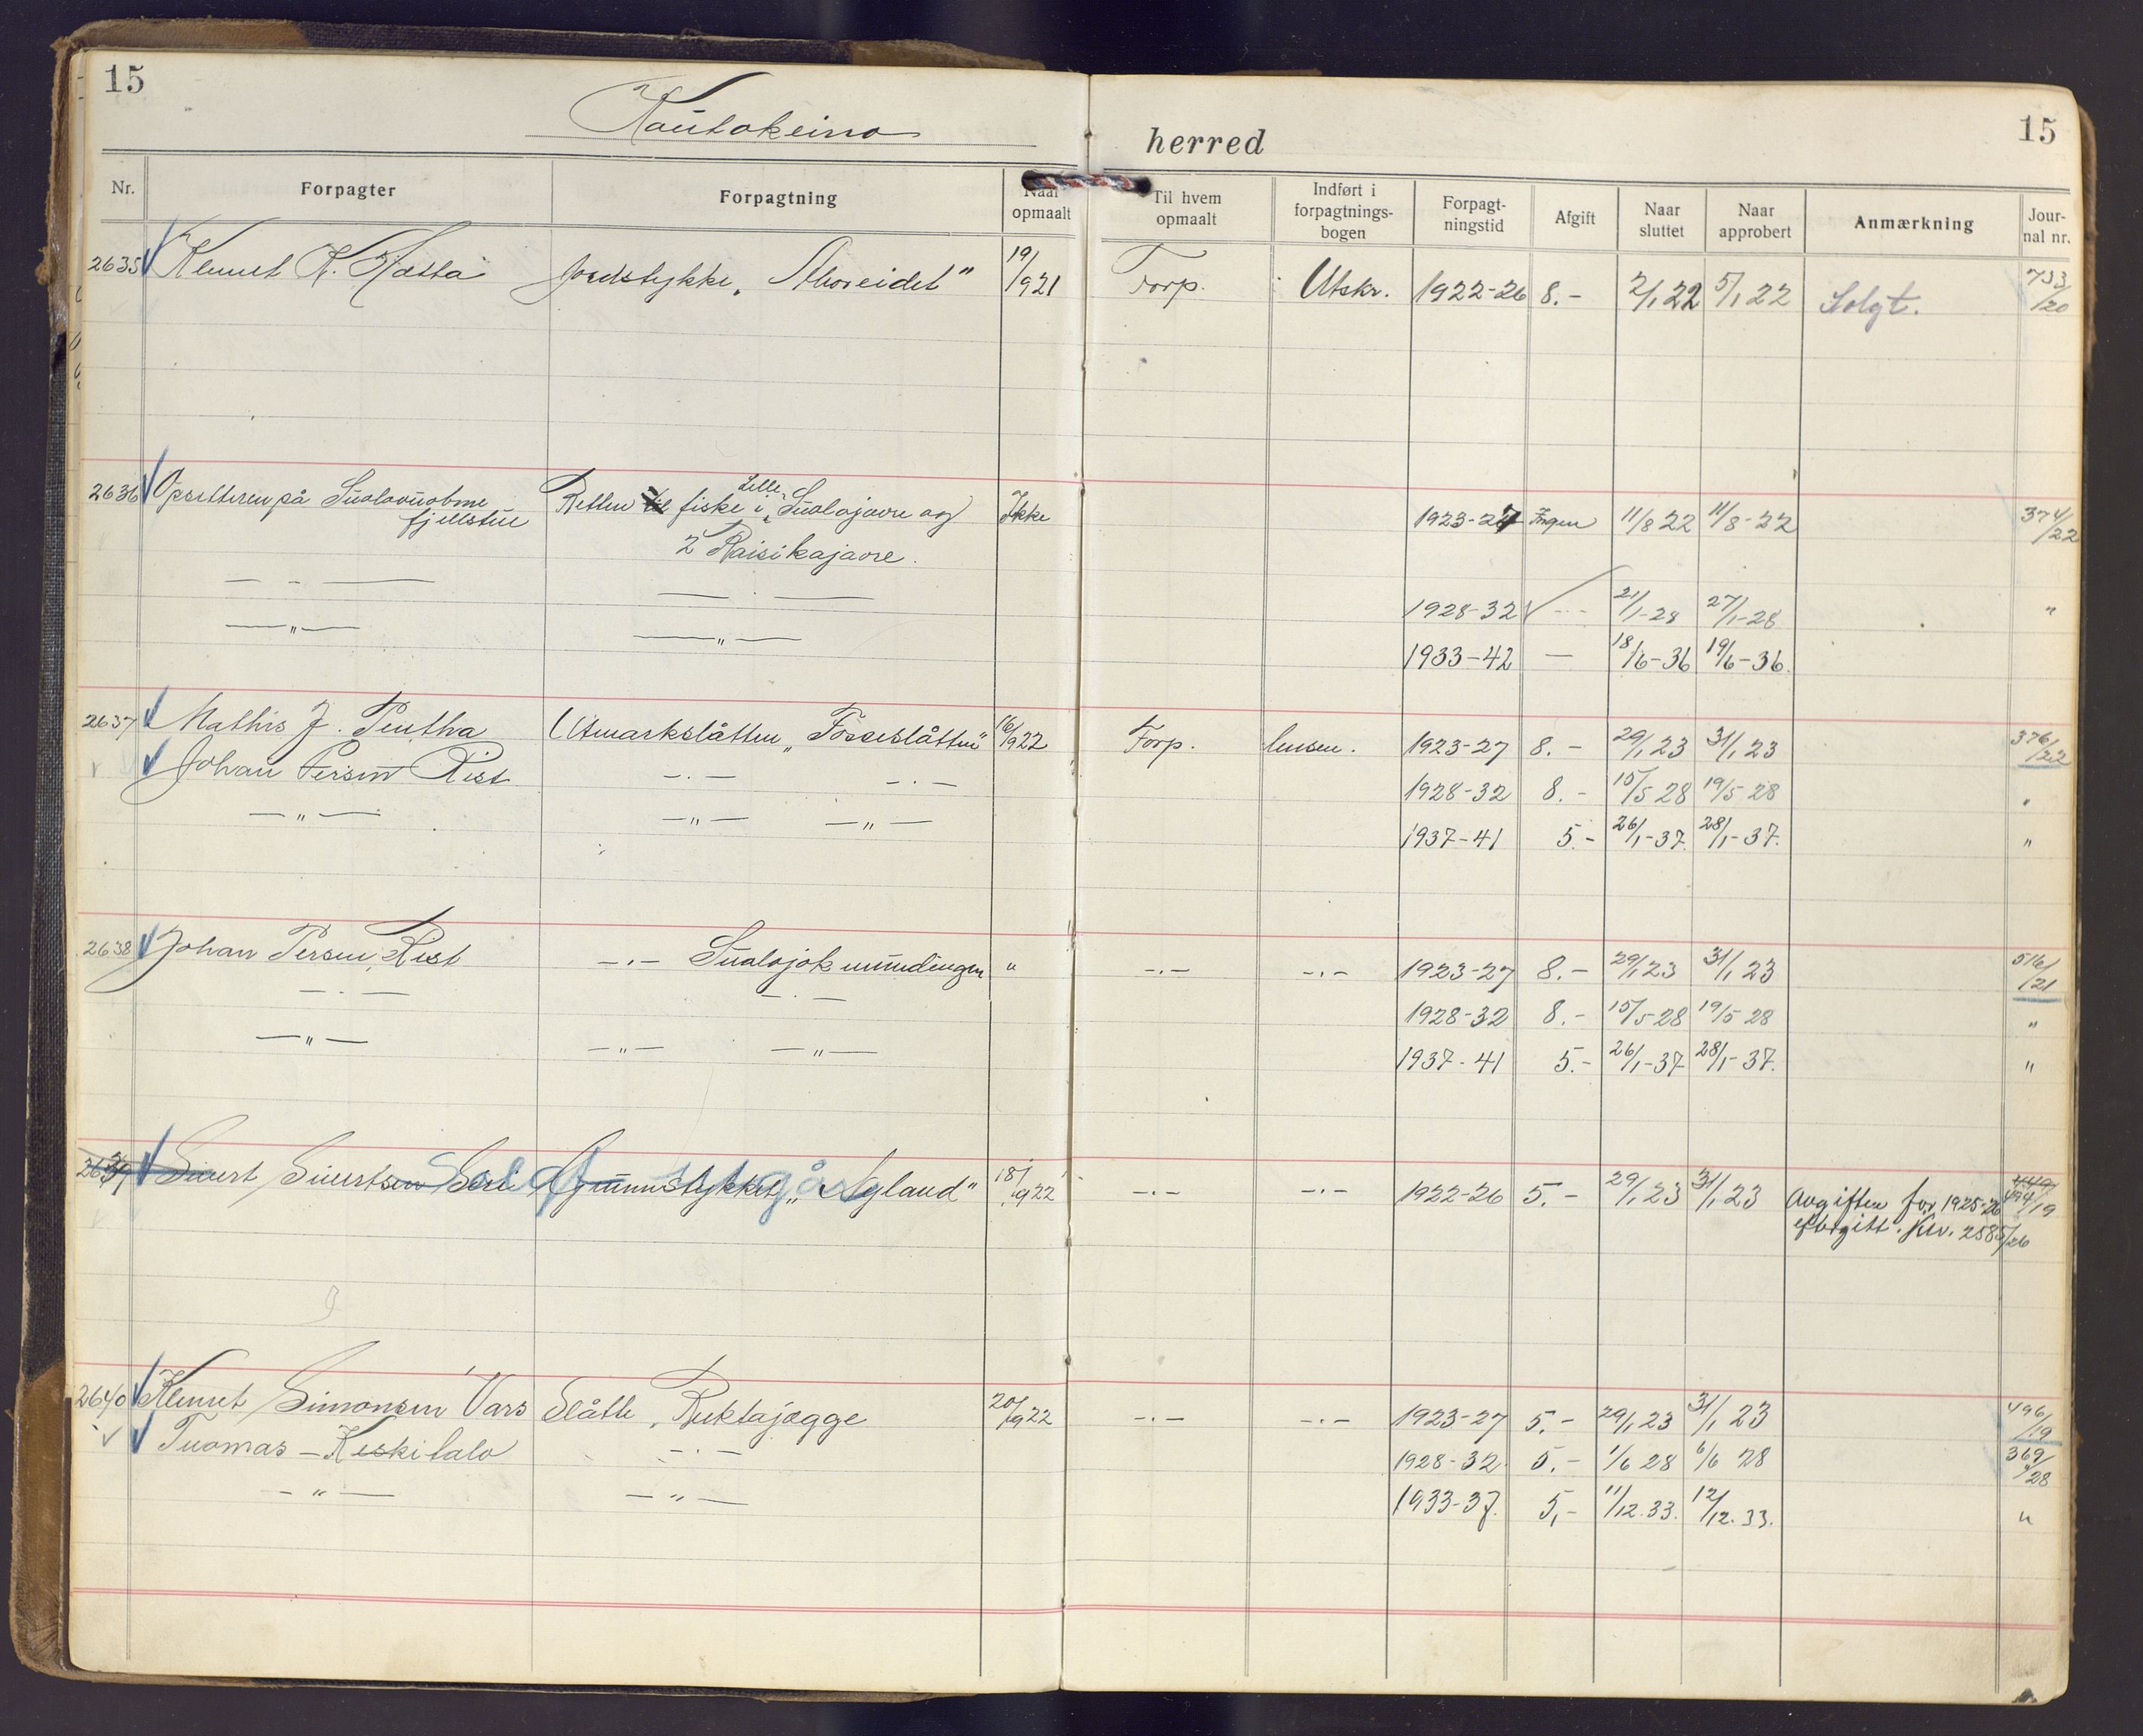 15
Kautokeino herred
15
Nr. Forpagter Forpagtning Naar opmaalt Til hvem opmaalt Indført i forpagtnings-bogen Forpagt-ningstid Afgift Naar sluttet Naar approbert Anmærkning Jour-nal nr.
2635 Klemet K. Hætta Jordstykke „ "  19/1921 Forp. Utskr. 1922-26 8.- 2/1 22 5/1 22 Solgt. 733/20
2636 Opsitteren på Suolovuobme Retten til fiske i Lille Suolojavre og Ikke 1923-27 Ingen 11/8 22 11/8-22 374/22
fjellstue 2 Raisikajavre.
— - — — . — 1928-32 -.- 21/1-28 27/1-28 "
—"— —"— 1933-42 — 18/6-36 19/6-36.
2637 Mathis J. Pentha Utmarkslåtten „Fosseslåtten" 16/1922 Forp. lensm. 1923-27 8.- 29/1 23 31/1 23 376/22
Johan Persen Rist -.- -.- 1928-32 8.- 15/5 28 19/5 28 "
—"— —"— —"— 1937-41 5.- 26/1-37. 28/1-37. "
2638 Johan Persen Rist -.- Suolojokmundingen " -.- -.- 1923-27 8.- 29/1 23 31/1 23 516/21
— . — — . — 1928-32 8.- 15/5-28 19/5 28 "
—"— —"— —"— 1937-41 5.- 26/1-37 28/1-37. "
2639 Siuert Siuertsen Grunnstykket „Nyland" 18/1922 -.- -.- 1922-26 5.- 29/1 23 31/1 23 Avgiften for 1925-26 494/19
eftergitt. Skr. 2585/26
2640 Klemet Simonsen Vars Slåtte „Ruktajægge 20/1922 -.- -.- 1923-27 5.- 29/1 23 31/1 23 496/19
Tuomas - Keskitalo -.- 1928-32 5.- 1/6 28 6/6 28 369/28
—"— —"— 1933-37. 5,- 11/12.33. 12/12.33. "